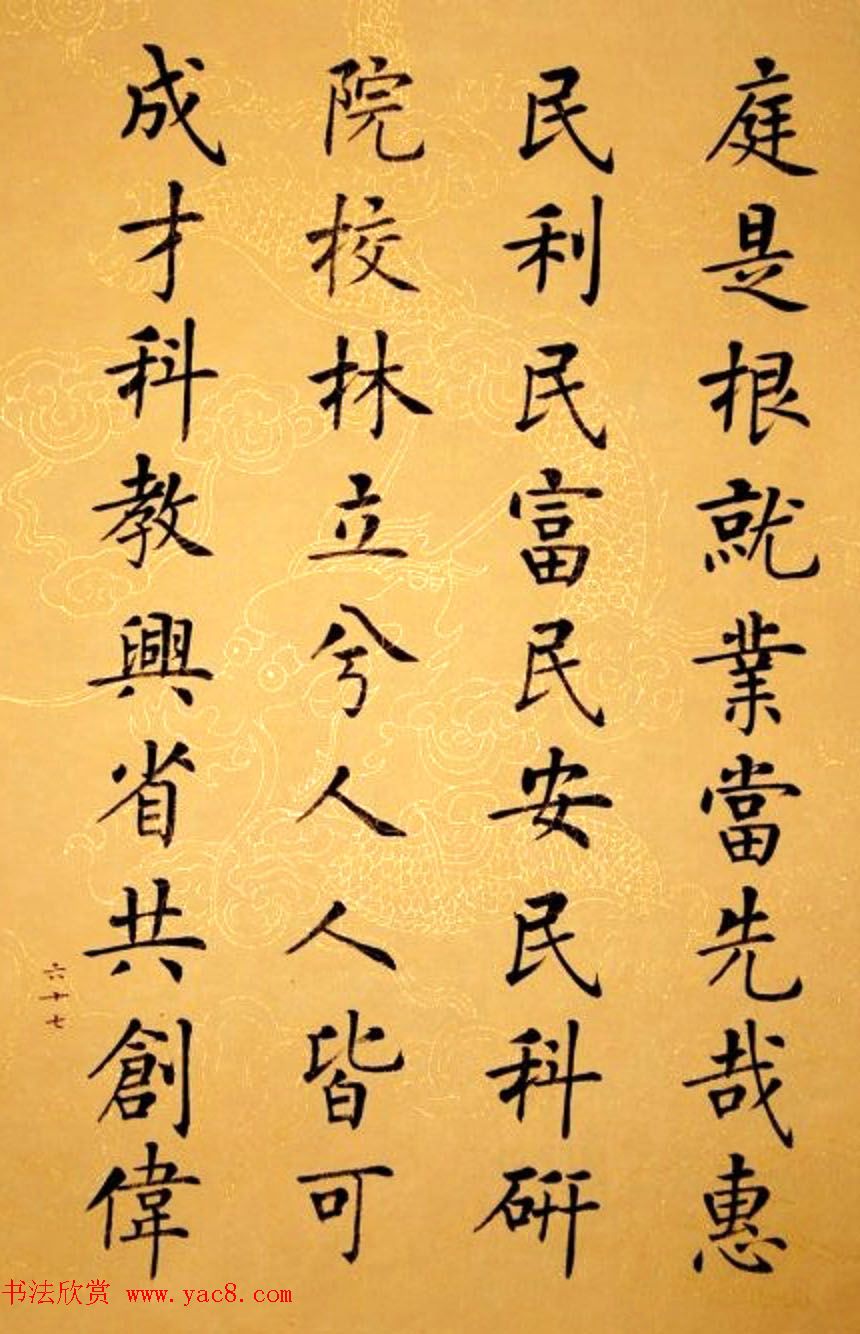 庭是根就業當先哉惠
民利民富民安民科研
院校林立兮人人皆可
成才科教興省共創偉
六十七
书法欣赏 www.yac8.com